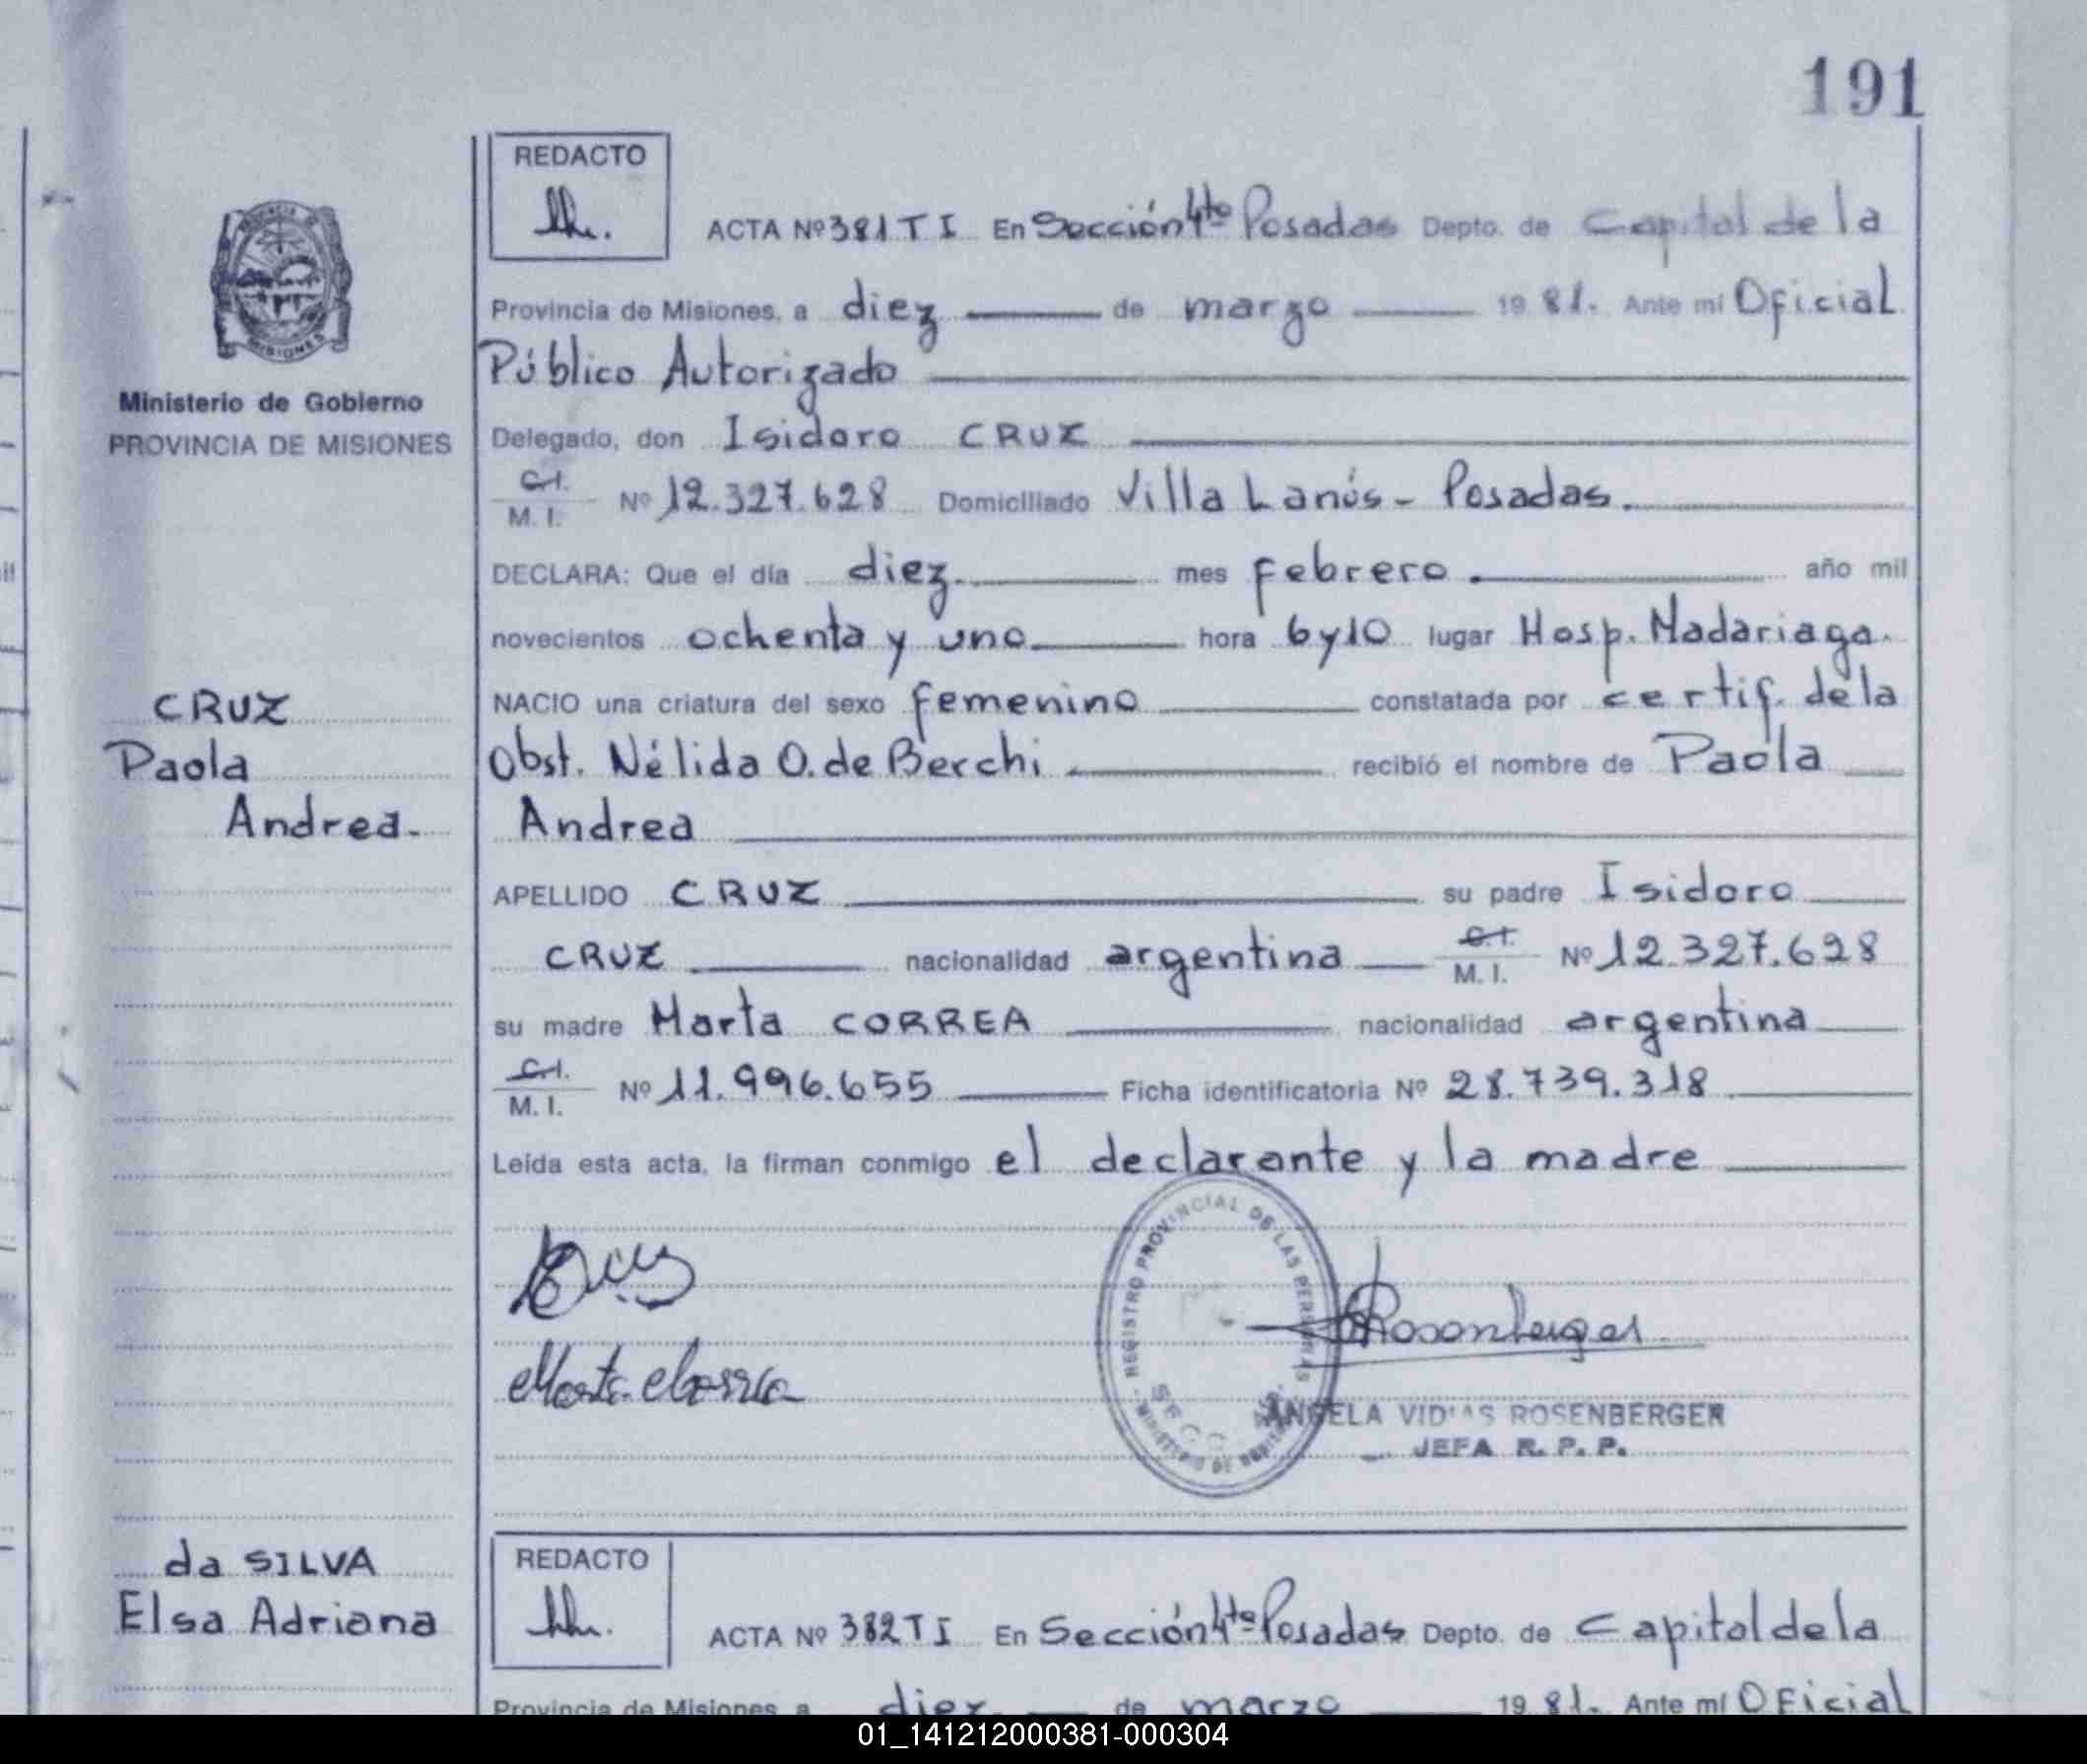 191
REDACTO
ACTA Nº 381 T I En Sección 4ta Posadas Depto. de Capital de la
Provincia de Misiones, a diez de marzo 1981. Ante mí Oficial
Público Autorizado
Delegado, don Isidoro CRUZ
C.I.
M. I. Nº 12.327.628 Domiciliado Villa Lanús - Posadas.
DECLARA: Que el día diez. mes febrero. año mil
novecientos ochenta y uno hora 6 y 10 lugar Hosp. Madariaga.
NACIO una criatura del sexo femenino constatada por certif. de la
Obst. Nélida O. de Berchi. recibió el nombre de Paola
Andrea
APELLIDO CRUZ su padre Isidoro
CRUZ nacionalidad argentina C.I. M. I. Nº 12.327.628
su madre Marta CORREA nacionalidad argentina
C.I.
M. I. Nº 11.996.655 Ficha identificatoria Nº 28.739.318
Leída esta acta, la firman conmigo el declarante y la madre
Marta Correa
Rosenberger
REGISTRO PROVINCIAL DE LAS PERSONAS
ANGELA ROSENBERGER
JEFA R. P. P.
MISIONES
Ministerio de Gobierno
PROVINCIA DE MISIONES
CRUZ
Paola
Andrea.
da SILVA
Elsa Adriana
REDACTO
ACTA Nº 382 T I En Sección 4ta Posadas Depto. de Capital de la
Provincia de Misiones, a diez de marzo 1981. Ante mí Oficial
01_141212000381-000304